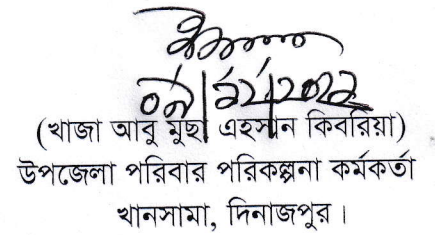 ০৯/১২/২০১২
(খাজা আবু মুছা এহসান কিবরিয়া)
উপজেলা পরিবার পরিকল্পনা কর্মকর্তা
খানসামা, দিনাজপুর।